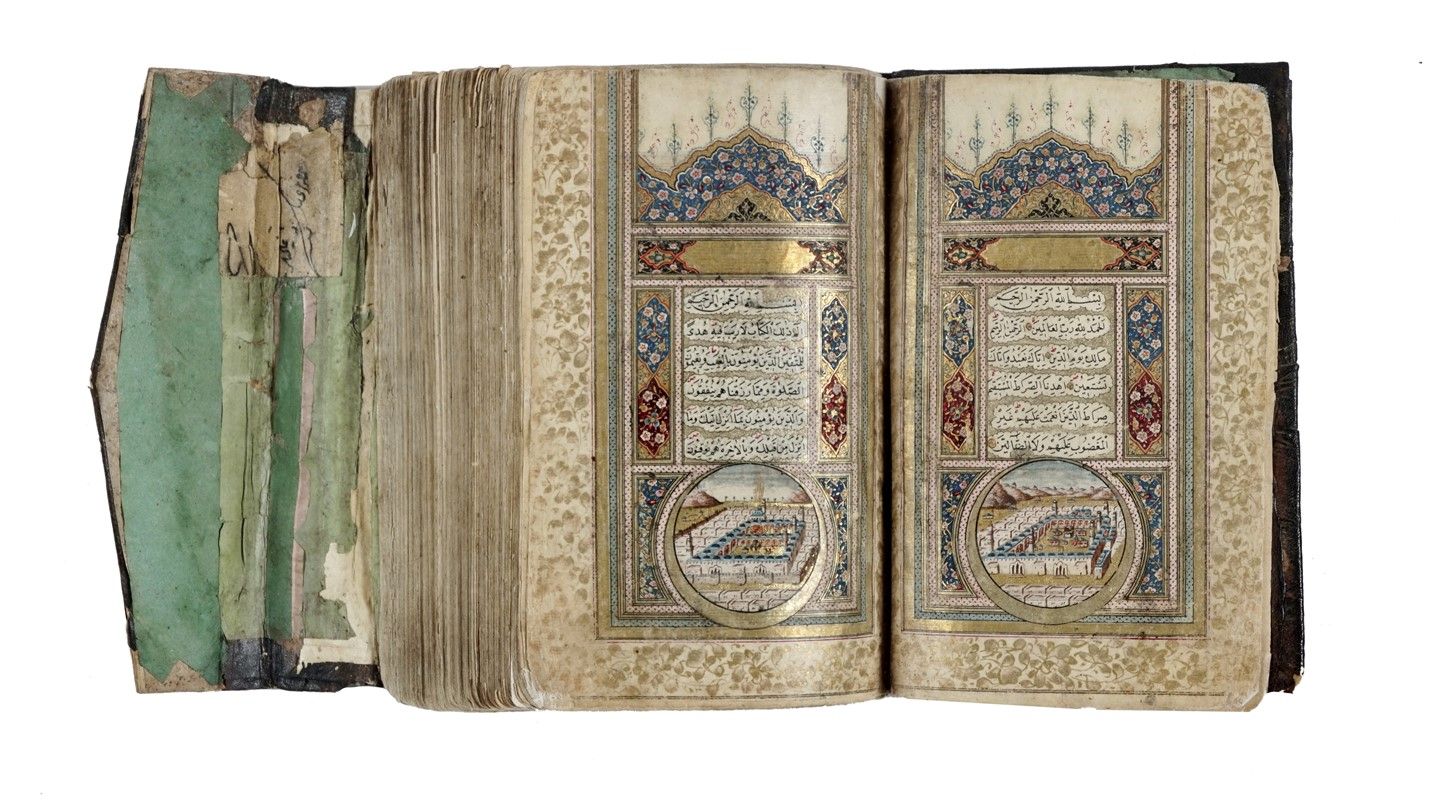 بسم الله الرحمن الرحيم
الحمد لله رب العالمين الرحمن الرحيم
مالك يوم الدين اياك نعبد واياك
نستعين اهدنا الصراط المستقيم
صراط الذين انعمت عليهم غير
المغضوب عليهم ولا الضالين
بسم الله الرحمن الرحيم
الم ذلك الكتاب لا ريب فيه هدى
للمتقين الذين يؤمنون بالغيب ويقيمون
الصلوة ومما رزقناهم ينفقون
والذين يؤمنون بما انزل اليك وما
انزل من قبلك وبالاخرة هم يوقنون